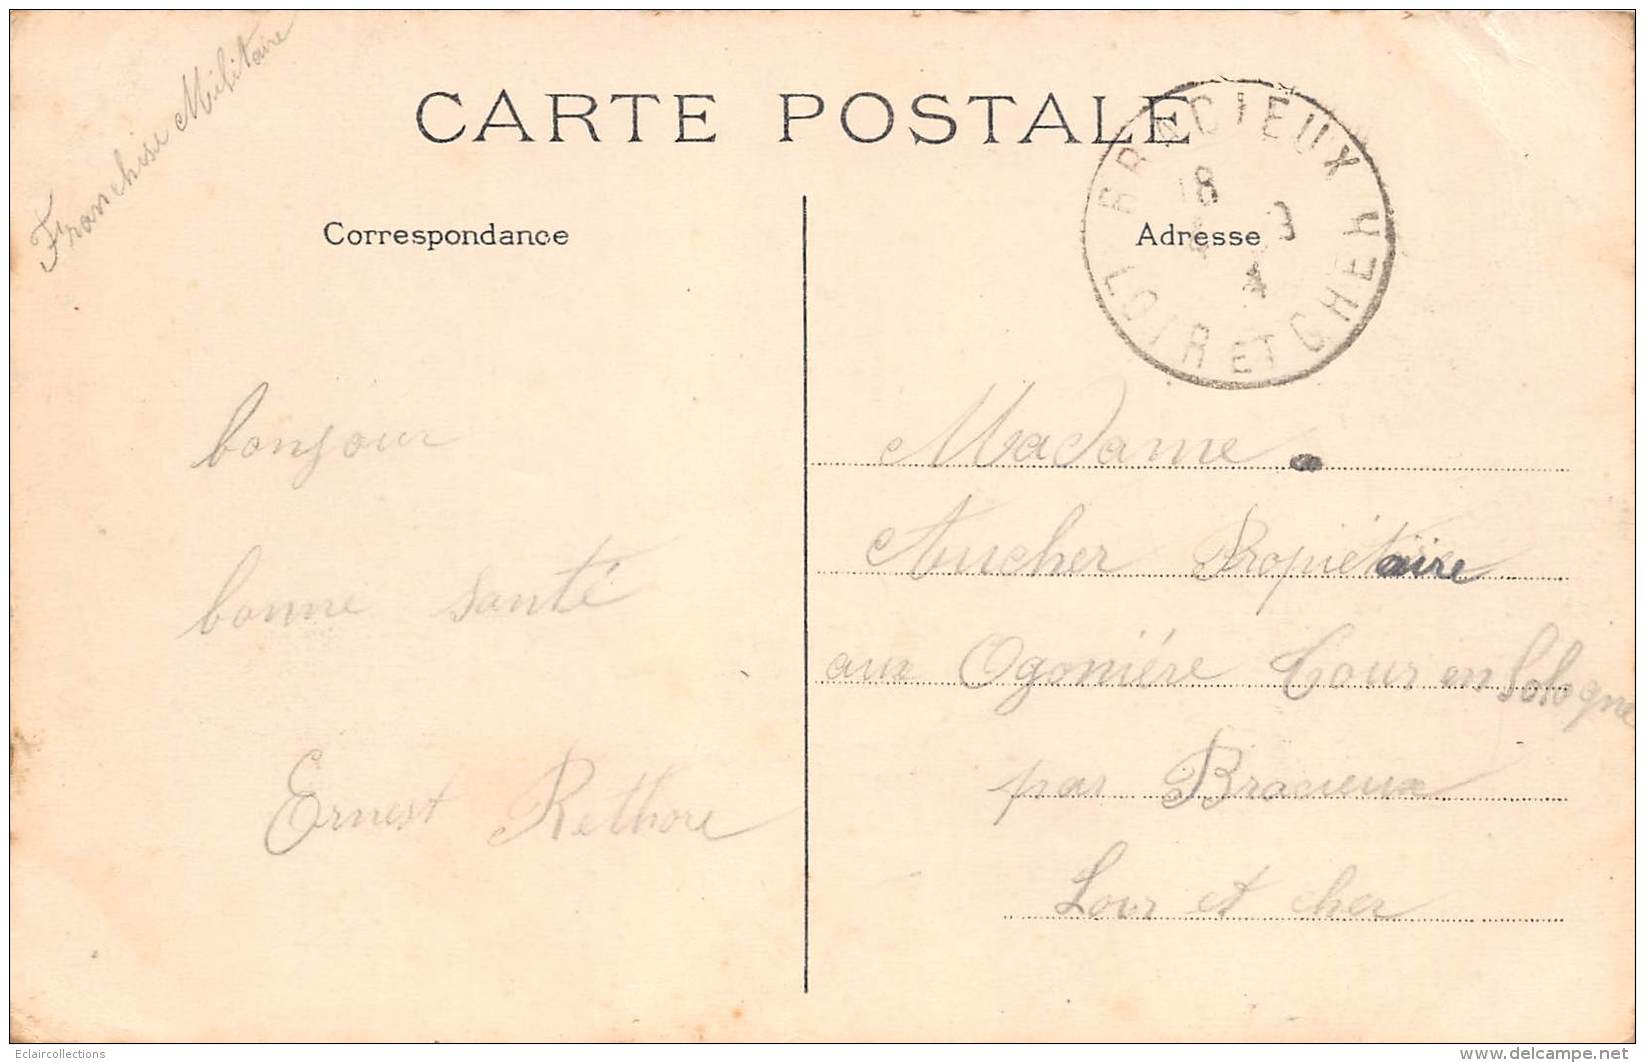 Franchise Militaire
CARTE POSTALE
BRACIEUX
18
LOIR ET CHER
Correspondance
Adresse
bonjour
bonne santé
Ernest Rethore
Madame
Aucher Propiétaire
aux Ogonière Tour en Sologne
par Bracieux
Loir et cher
Eclaircollections
delcampe.net